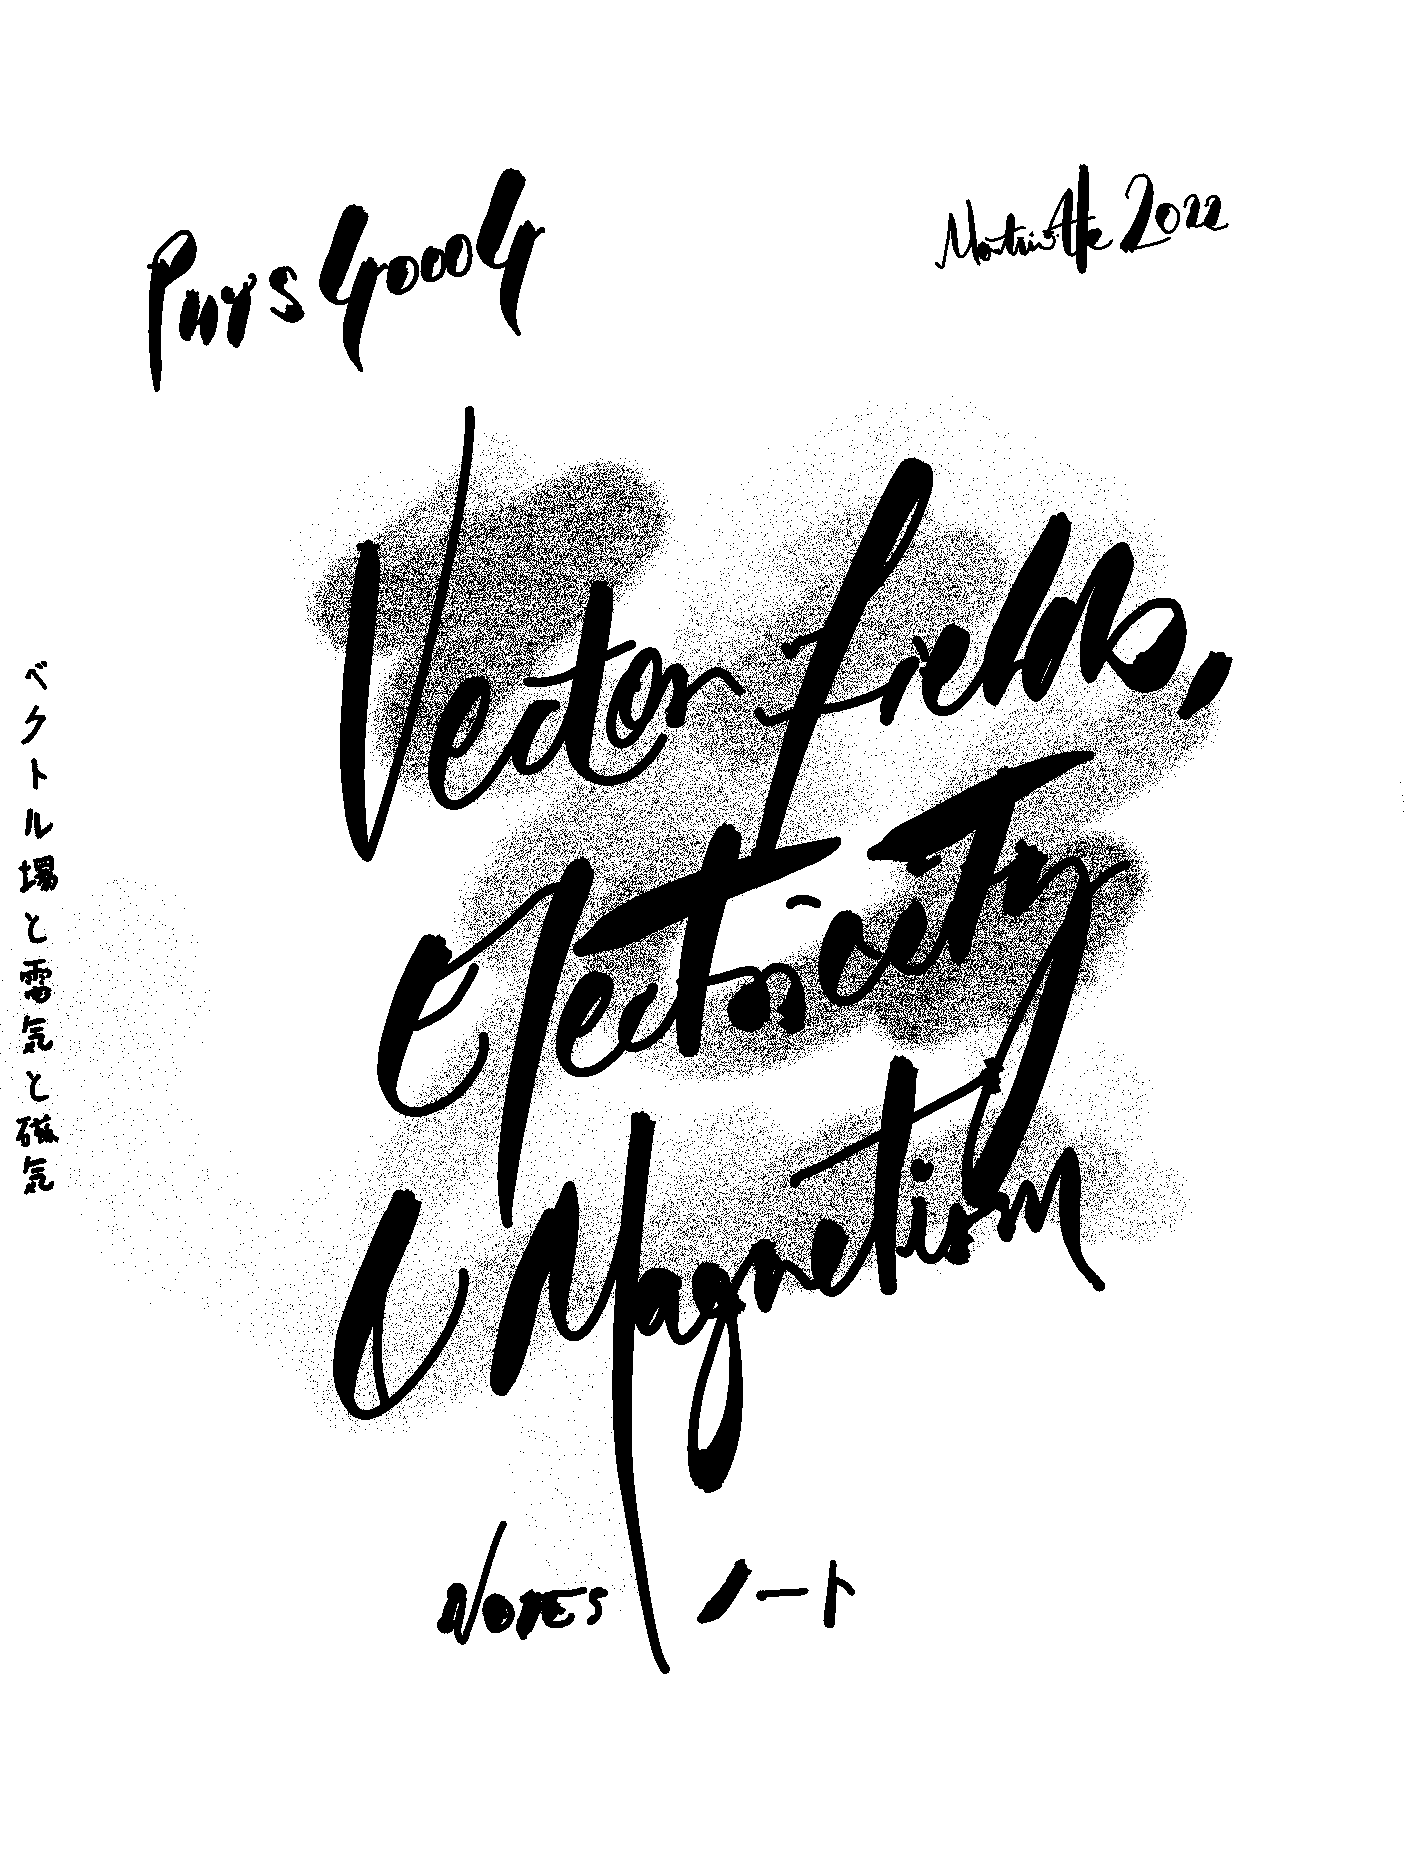 PHYS 40004
2022
Vector fields,
electricity
& Magnetism
ベクトル場と電気と磁気
NOTES ノート